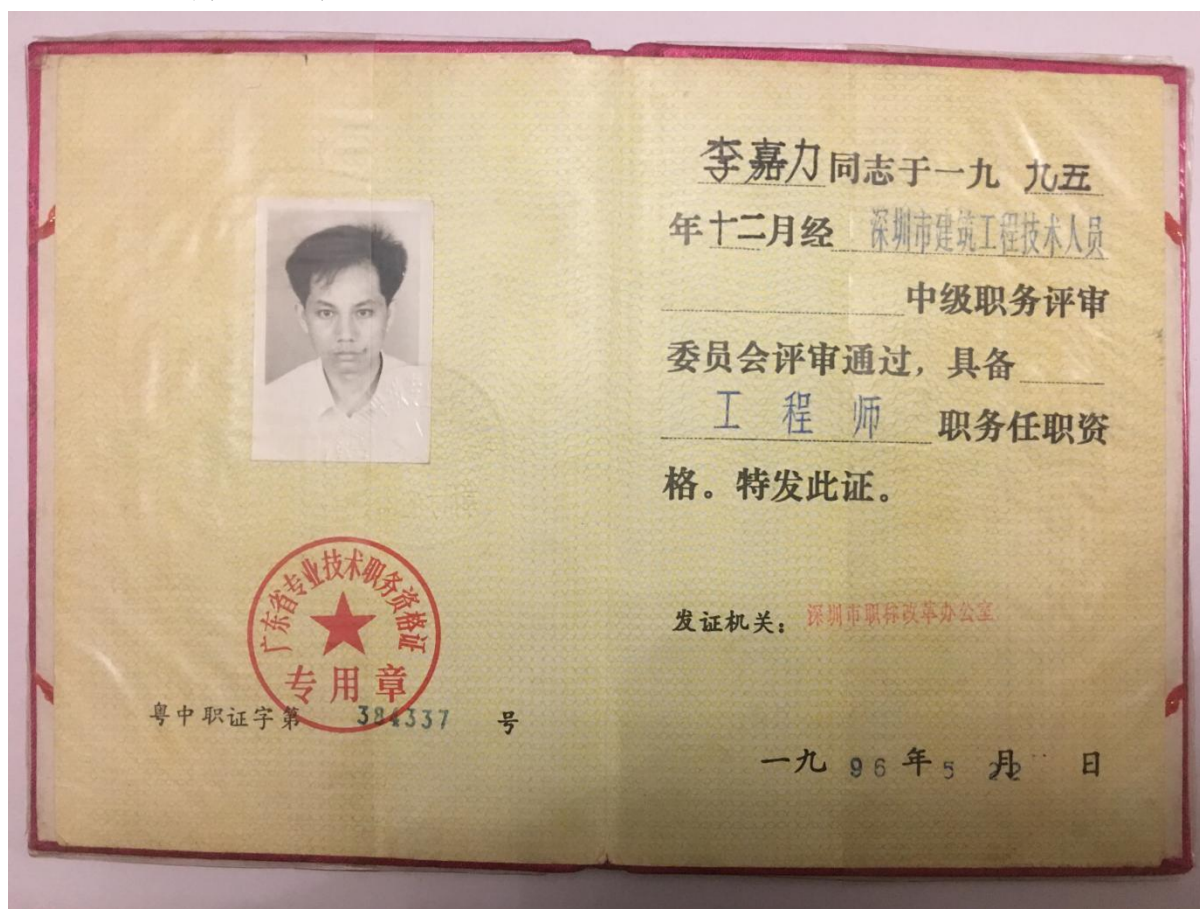 广东省专业技术职务资格证
专用章
粤中职证字第 384337 号
李嘉力同志于一九 九五
年十二月经 深圳市建筑工程技术人员
中级职务评审
委员会评审通过，具备
工 程 师 职务任职资
格。特发此证。
发证机关：深圳市职称改革办公室
一九 96 年 5 月 22 日